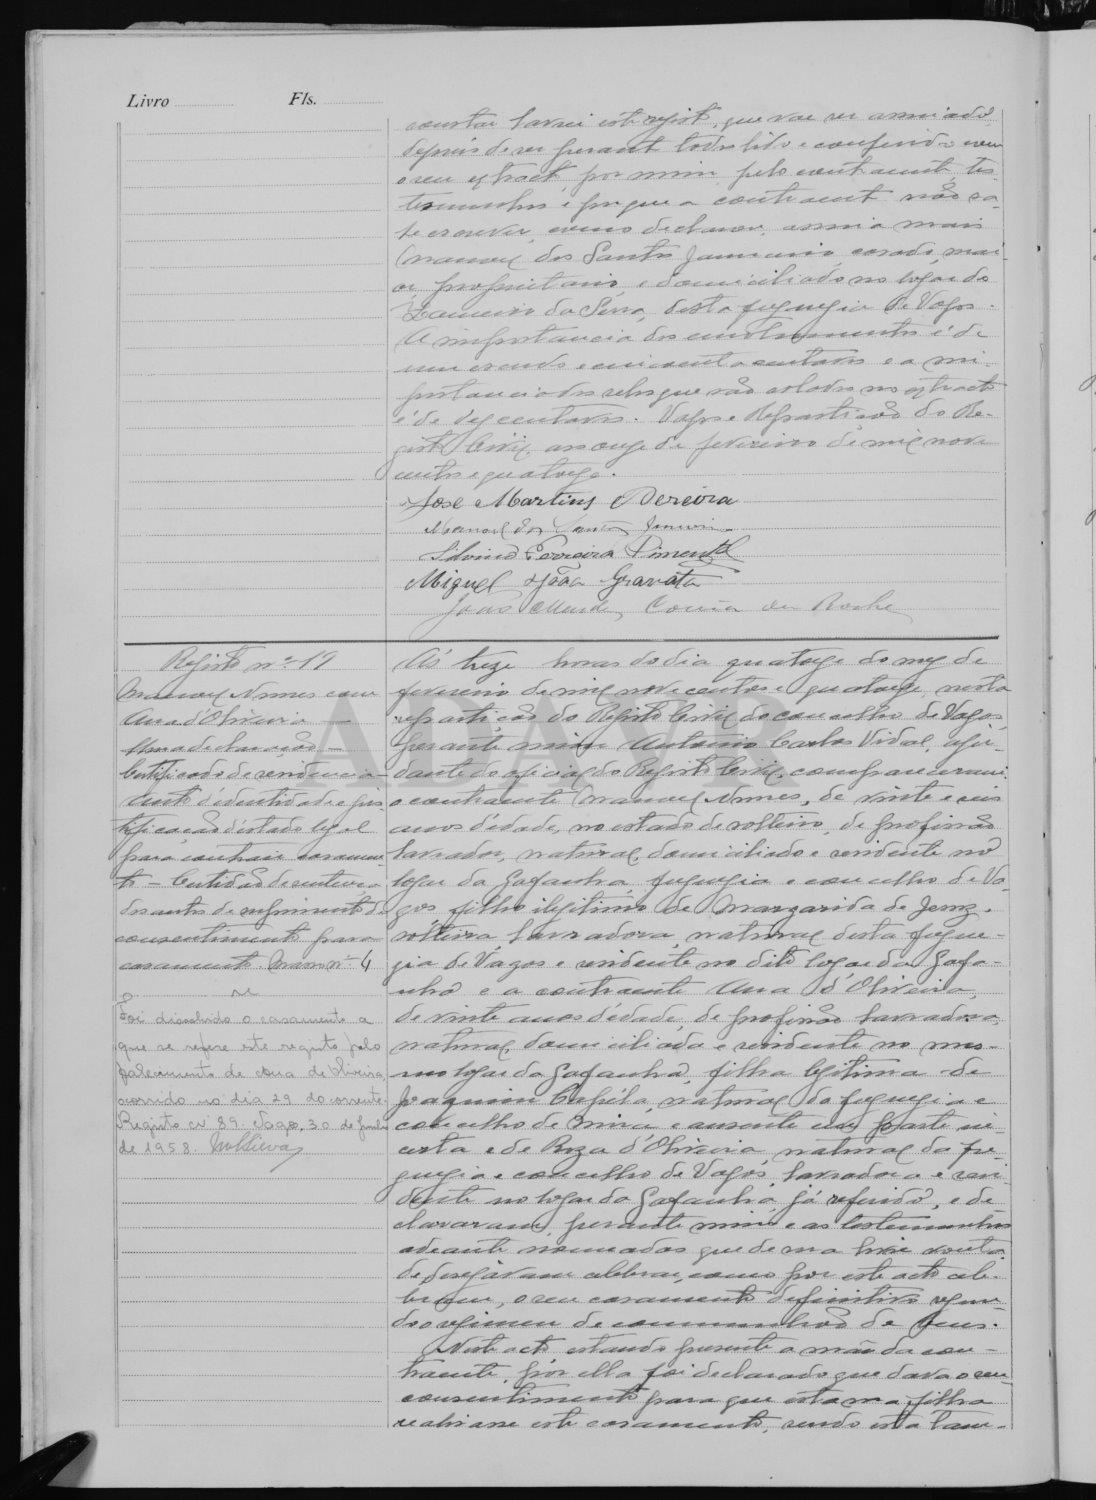 Livro Fls.
constar lavrei este registo, que vae ser assinado,
depois de ser perante todos lido e conferido com
o seu extracto, por mim, pelo contraente, tes-
temunhas e porque a contraente não sa-
be escrever, como declarou, assina mais
Manoel dos Santos Januario, casado, mai-
or, proprietario, e domiciliado no logar do
da Serra, desta freguezia de Vagos.
A importancia dos emolumentos é de
um escudo e cincoenta centavos e a im-
portancia dos selos que vão colados no extracto
é de dez centavos. Vagos e Repartição do Re-
gisto Civil, aos onze de fevereiro de mil nove
centos e quatorze.
Jose Martins Pereira
Manoel dos Santos
Silvino Ferreira Pimentel
Miguel João Gravato
João Mendes Correia da Rocha
Registo nº 19
Manoel Nunes com
Ana d'Oliveira —
Uma declaração —
Certificado de residencia —
Auto d'identidade e jus-
tificação d'estado legal
para contrair casamen-
to — Certidão de sentença
dos autos de suprimento de
consentimento para
casamento. Maço nº 4
Foi dissolvido o casamento a
que se refere este registo pelo
falecimento de Ana de Oliveira,
ocorrido no dia 29 do corrente.
Registo nº 89. Vagos, 30 de
de 1958.
Ás treze horas do dia quatorze do mez de
fevereiro de mil nove centos e quatorze, nesta
repartição do Registo Civil do concelho de Vagos,
perante mim Antonio Carlos Vidal, aju-
dante do oficial do Registo Civil, compareceram:
o contraente Manoel Nunes, de vinte e seis
anos d'edade, no estado de solteiro, de profissão
lavrador, natural, domiciliado e residente no
logar da Gafanha, freguezia e concelho de Va-
gos, filho ilegitimo de Margarida de Jesus,
solteira, lavradora, natural desta fregue-
zia de Vagos e residente no dito logar da Gafa-
nha e a contraente Ana d'Oliveira,
de vinte anos d'edade, de profissão lavradora,
natural, domiciliada e residente no mes-
mo logar da Gafanha, filha legitima de
Joaquim Capéla, natural da freguezia e
concelho de Mira e ausente em parte in-
certa e de Roza d'Oliveira, natural da fre-
guezia e concelho de Vagos, lavradora e resi-
dente no logar da Gafanha, já referido, e de-
clararam perante mim e as testemunhas
adeante nomeadas que de sua livre vonta-
de desejavam celebrar, como por este acto cele-
bram, o seu casamento definitivo segun-
do o regimen de communhão de bens.
Neste acto estando presente a mãe da con-
traente, por ella foi declarado que dava o seu
consentimento para que esta sua filha
realisasse este casamento, sendo esta tam-
ADAVR